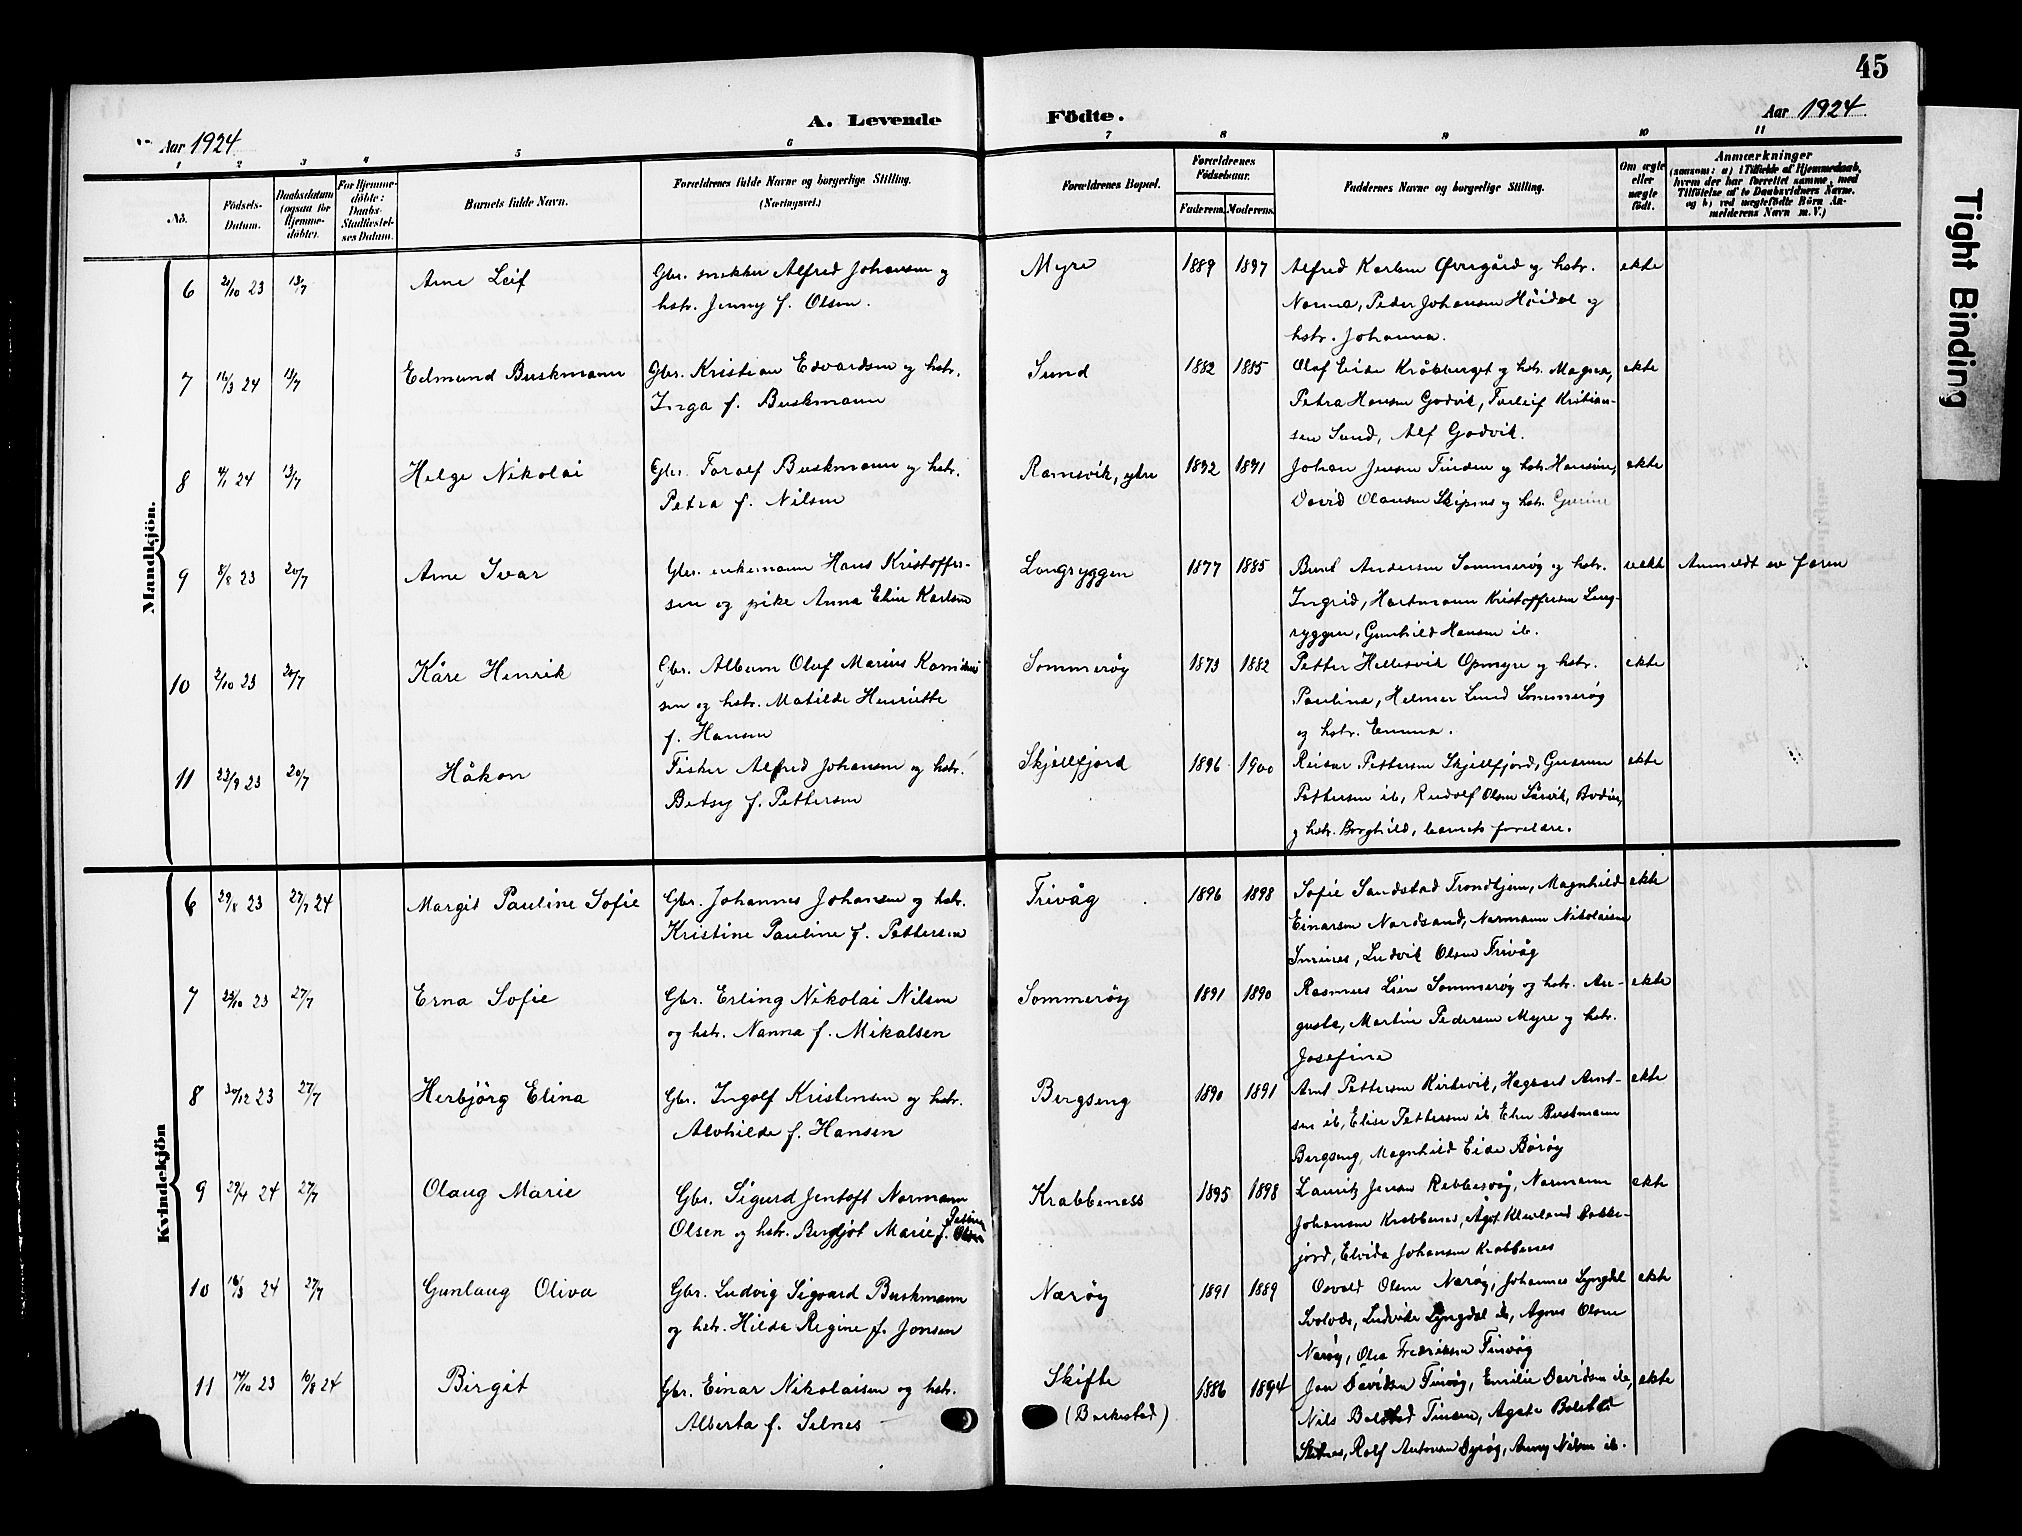 45
A. Levende Födte.
Aar 1924
Aar 1924
1 2 3 4 5 6 7 8 9 10 11
No.
Fødsels-
Datum.
Daabsdatum
(ogsaa for
Hjemme-
döbte).
For Hjemme-
döbte:
Daabs-
Stadfæstel-
ses Datum.
Barnets fulde Navn.
Forældrenes fulde Navne og borgerlige Stilling.
(Næringsvei.)
Forældrenes Bopæl.
Forældrenes
Födselsaar.
Faderens. Moderens.
Faddernes Navne og borgerlige Stilling.
Om ægte
eller
uægte
födt.
Anmærkninger
(saasom: a) i Tilfælde af Hjemmedaab,
hvem der har forrettet samme, med
Tilföielse af to Daabsvidners Navne,
og b) ved uægtefödte Börn An-
melderens Navn m. V.)
Mandkjön.
6 2/10 23 13/7 Arne Leif Gbr. snekker Alfred Johansen og Myre 1889 1897 Alfred Karlsen Øvregård og hstr. ekte
hstr. Jenny f. Olsen. Norma, Peder Johansen Höidal og
hstr. Johanna.
7 16/3 24 13/7 Edmund Buskmann Gbr. Kristian Edvardsen og hstr. Sund 1882 1885 Olaf Eide Kråkberget og hstr. Magna, ekte
Inga f. Buskmann Petra Hansen Godvik, Torleif Kristian-
sen Sund, Alf Godvik.
8 4/1 24 13/7 Helge Nikolai Gbr. Toralf Buskmann og hstr. Ramsvik, ytre 1892 1891 Johan Jensen Tinden og hstr. Hansine, ekte
Petra f. Nilsen David Olausen Skipnes og hstr. Gurine
9 8/8 23 20/7 Arne Ivar Gbr. enkemann Hans Kristoffer- Langryggen 1877 1885 Berul Andersen Sommerøy og hstr. uekte Anmeldt av faren
sen og pike Anna Elise Karlsen Ingrid, Hartmann Kristoffersen Lang-
ryggen, Gunhild Hansen ib.
10 2/10 23 20/7 Kåre Henrik Gbr. Album Oluf Marius Kornelius Sommerøy 1873 1882 Petter Hellesvik Opmyre og hstr. ekte
sen og hstr. Matilde Henriette Paulina, Helmer Lund Sommerøy
f. Hansen og hstr. Emma.
11 23/9 23 20/7 Håkon Fisker Alfred Johansen og hstr. Skjellfjord 1896 1900 Reidar Pettersen Skjellfjord, Gudrun ekte
Betsy f. Pettersen Pettersen ib, Rudolf Olsen Sørvik, Bodin,
og hstr. Borghild, barnets forældre.
Kvindekjön
6 29/8 23 27/7 24 Margit Pauline Sofie Gbr. Johannes Johansen og hstr. Trivåg 1896 1898 Sofie Sandstad Trondhjem, Magnhild ekte
Kristine Pauline f. Pettersen Einarsen Nordsand, Normann Nikolaisen
Smines, Ludvik Olsen Trivåg
7 23/10 23 27/7 Erna Sofie Gbr. Erling Nikolai Nilsen Sommerøy 1891 1890 Rasmus Lien Sommerøy og hstr. Au- ekte
og hstr. Nanna f. Mikalsen gusta, Martin Pedersen Myre og hstr.
Josefine
8 30/12 23 27/7 Herbjörg Elina Gbr. Ingolf Kristensen og hstr. Bergseng 1890 1891 Arnt Pettersen Kirkevik, Hagbart Arnt- ekte
Alvhilde f. Hansen sen ib, Elise Pettersen ib, Elen Buskmann
Bergseng, Magnhild Eide Børøy
9 29/4 24 27/7 Olaug Marie Gbr. Sigurd Jentoft Normann Krabbeness 1895 1898 Lauritz Jensen Rabbesvåg, Normann ekte
Olsen og hstr. Bergljot Marie Petrine f. Olsen Johansen Krabbenes, Ågot Kleiland Bakke-
jord, Elvida Johansen Krabbenes
10 16/3 24 27/7 Gunlaug Oliva Gbr. Ludvig Sigvard Buskmann Nærøy 1891 1889 Osvald Olsen Nærøy, Johannes Lyngdal ekte
og hstr. Hilda Regine f. Jonsen Svolvær, Ludvika Lyngdal ib, Agnes Olsen
Nærøy, Olea Fredriksen Tinvåg
11 14/10 23 10/8 24 Birgit Gbr. Einar Nikolaisen og hstr. Skifte 1886 1894 Jon Davidsen Tinvåg, Emilie Davidsen ib, ekte
Alberta f. Selnes (Barkestad) Nils Bolstad Tinden, Agate Bolstad
Steines, Rolf Antonsen Dyrøy, Anny Nilsen ib.
Tight Binding